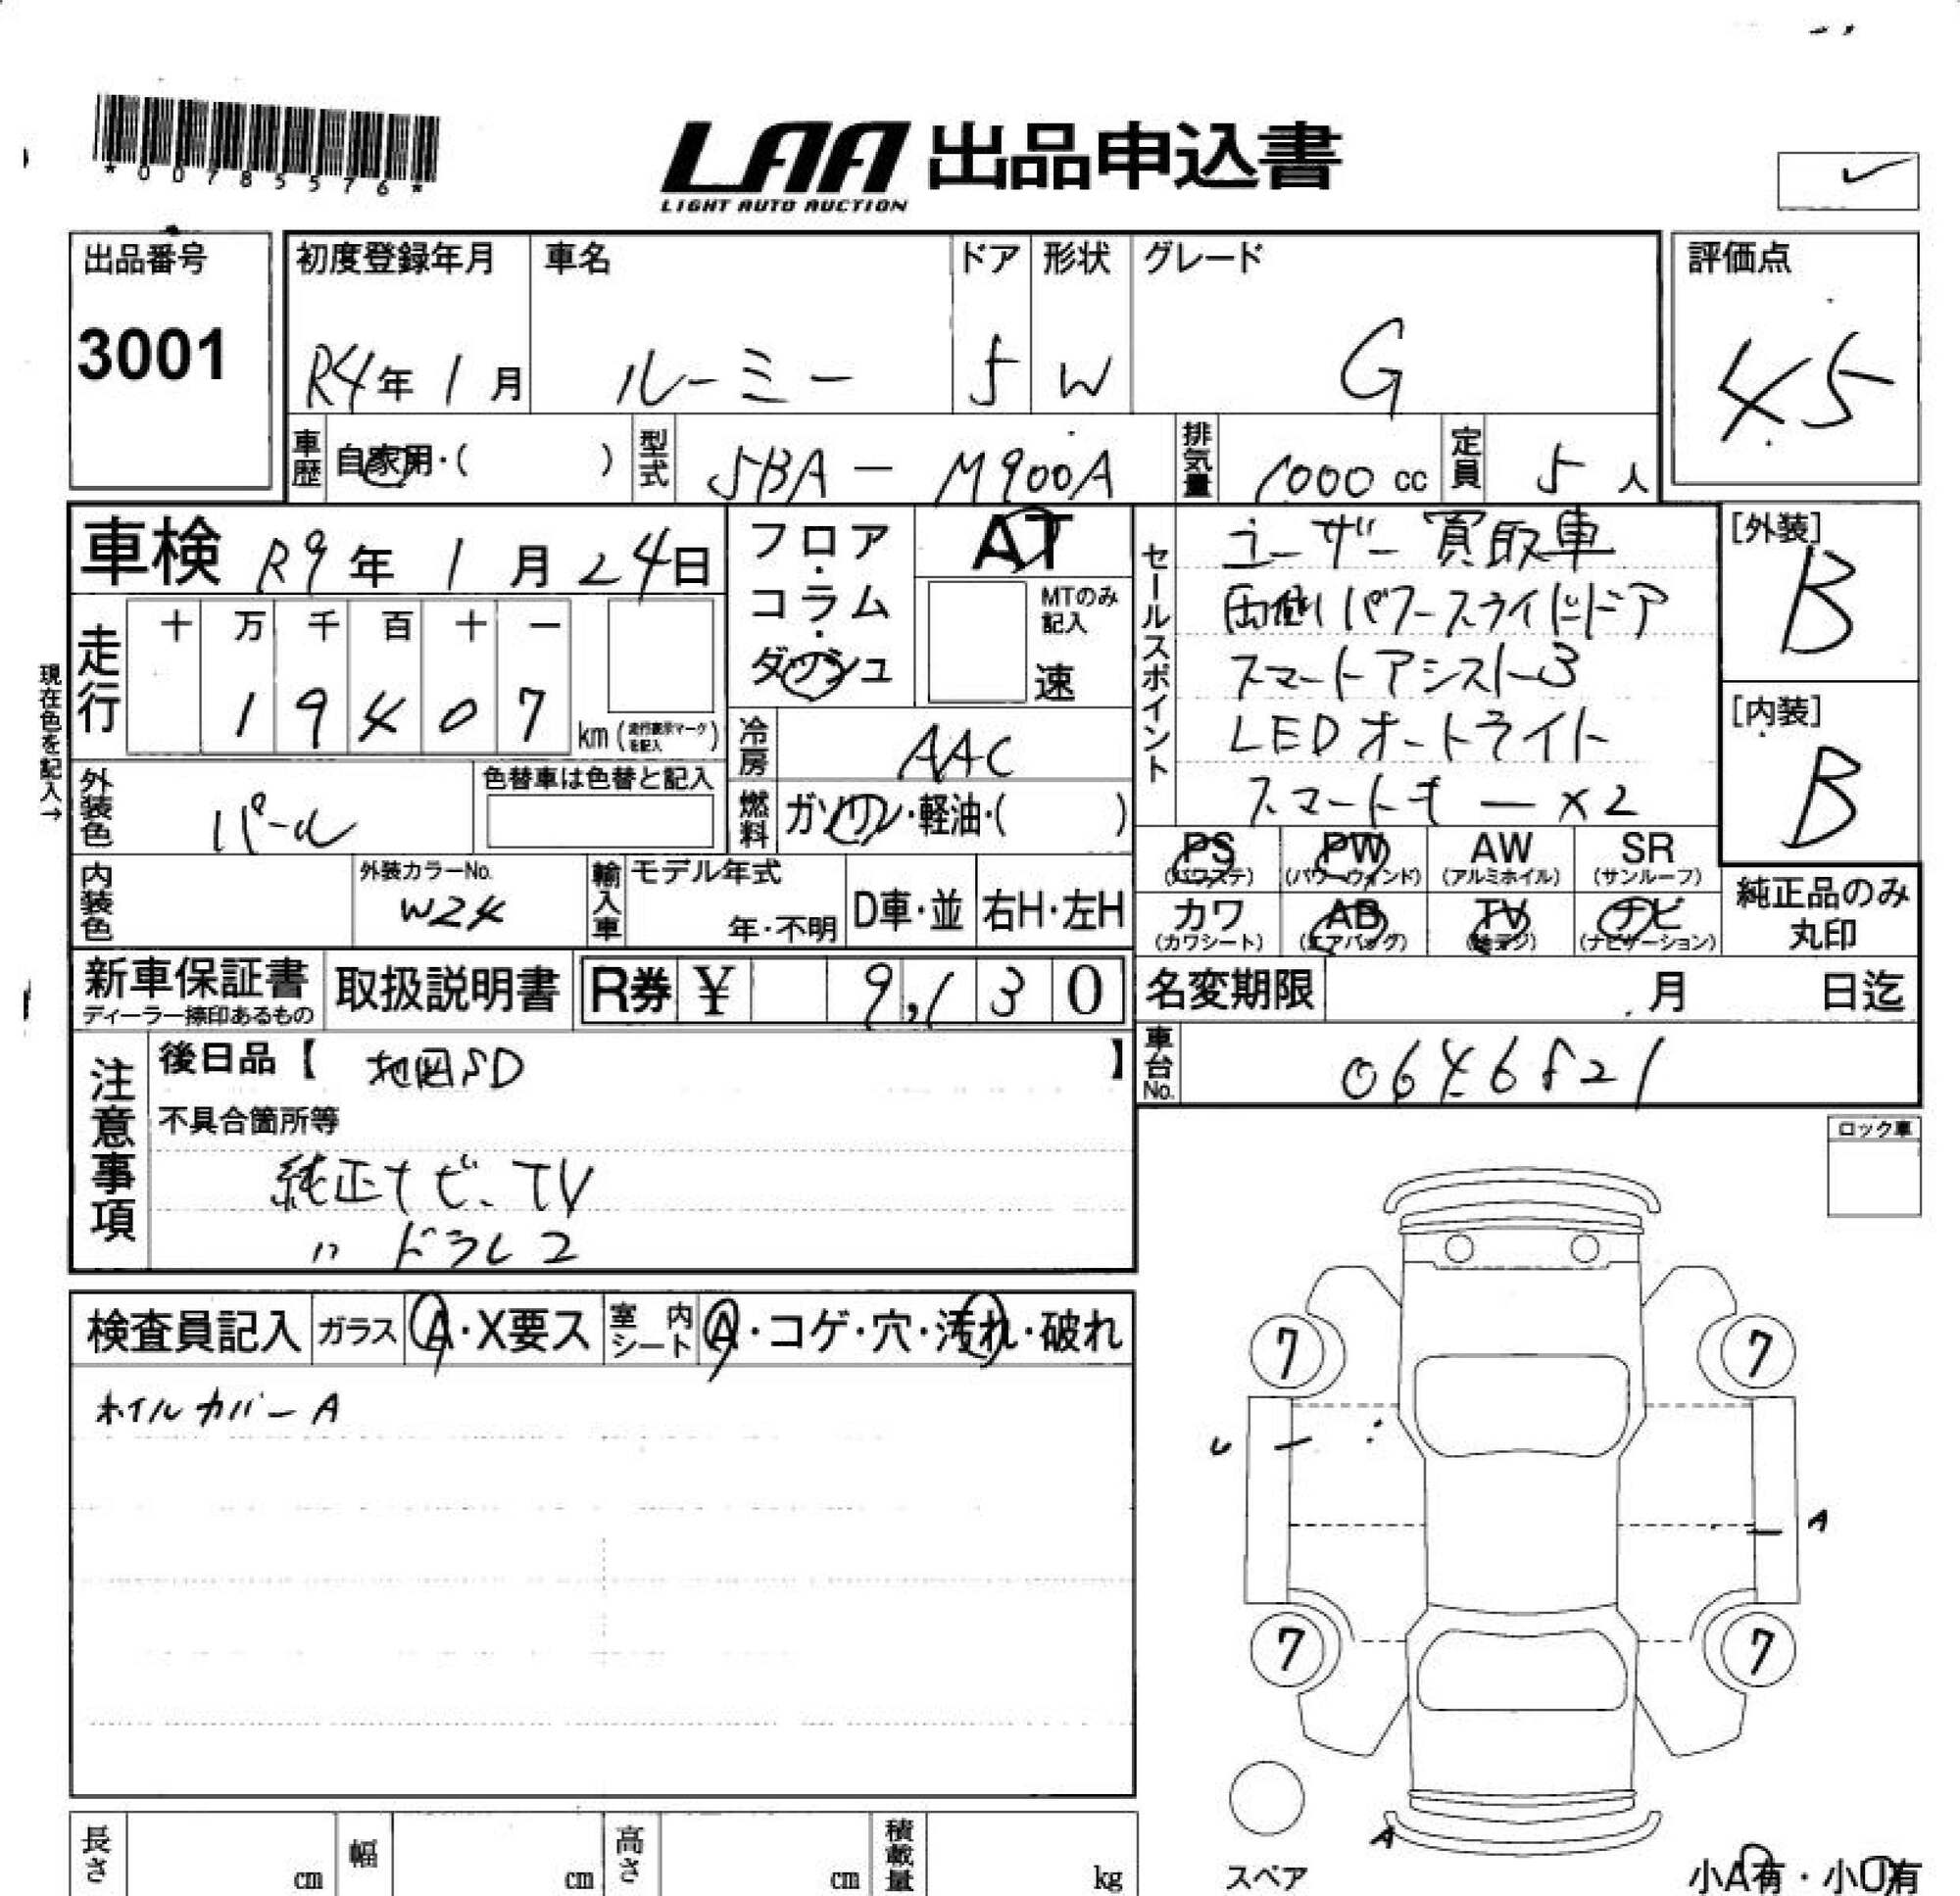 *00785576*
LAA 出品申込書
LIGHT AUTO AUCTION
出品番号
3001
初度登録年月
R4年 1月
車名
ルーミー
ドア
5
形状
W
グレード
G
評価点
4.5
車歴
自家用・( )
型式
5BA - M900A
排気量
1000 cc
定員
5 人
車検 R9年 1月 24日
現在色を記入→
走行
十 万 千 百 十 一
1 9 4 0 7
km (走行表示マークを記入)
外装色
パール
色替車は色替と記入
内装色
外装カラーNo.
W24
フロア・コラム・ダッシュ
AT
MTのみ記入
速
冷房
AAC
燃料
ガソリン・軽油・( )
輸入車
モデル年式
年・不明
D車・並
右H・左H
セールスポイント
ユーザー買取車
両側パワースライドドア
スマートアシスト3
LEDオートライト
スマートキーx2
[外装]
B
[内装]
B
PS
(パワステ)
PW
(パワーウィンド)
AW
(アルミホイル)
SR
(サンルーフ)
カワ
(カワシート)
AB
(エアバッグ)
TV
ナビ
(ナビゲーション)
純正品のみ
丸印
新車保証書
ディーラー捺印あるもの
取扱説明書
R券 ¥ 9,130
名変期限 月 日迄
車台No.
0646821
注意事項
後日品【 地図SD 】
不具合箇所等
純正ナビ、TV
〃 ドラレコ
ロック車
検査員記入
ガラス
A・X要ス
室内シート
A・コゲ・穴・汚れ・破れ
ホイルカバーA
7
7
A
7
7
A
スペア
小A有・小U有
長さ
cm
幅
cm
高さ
cm
積載量
kg